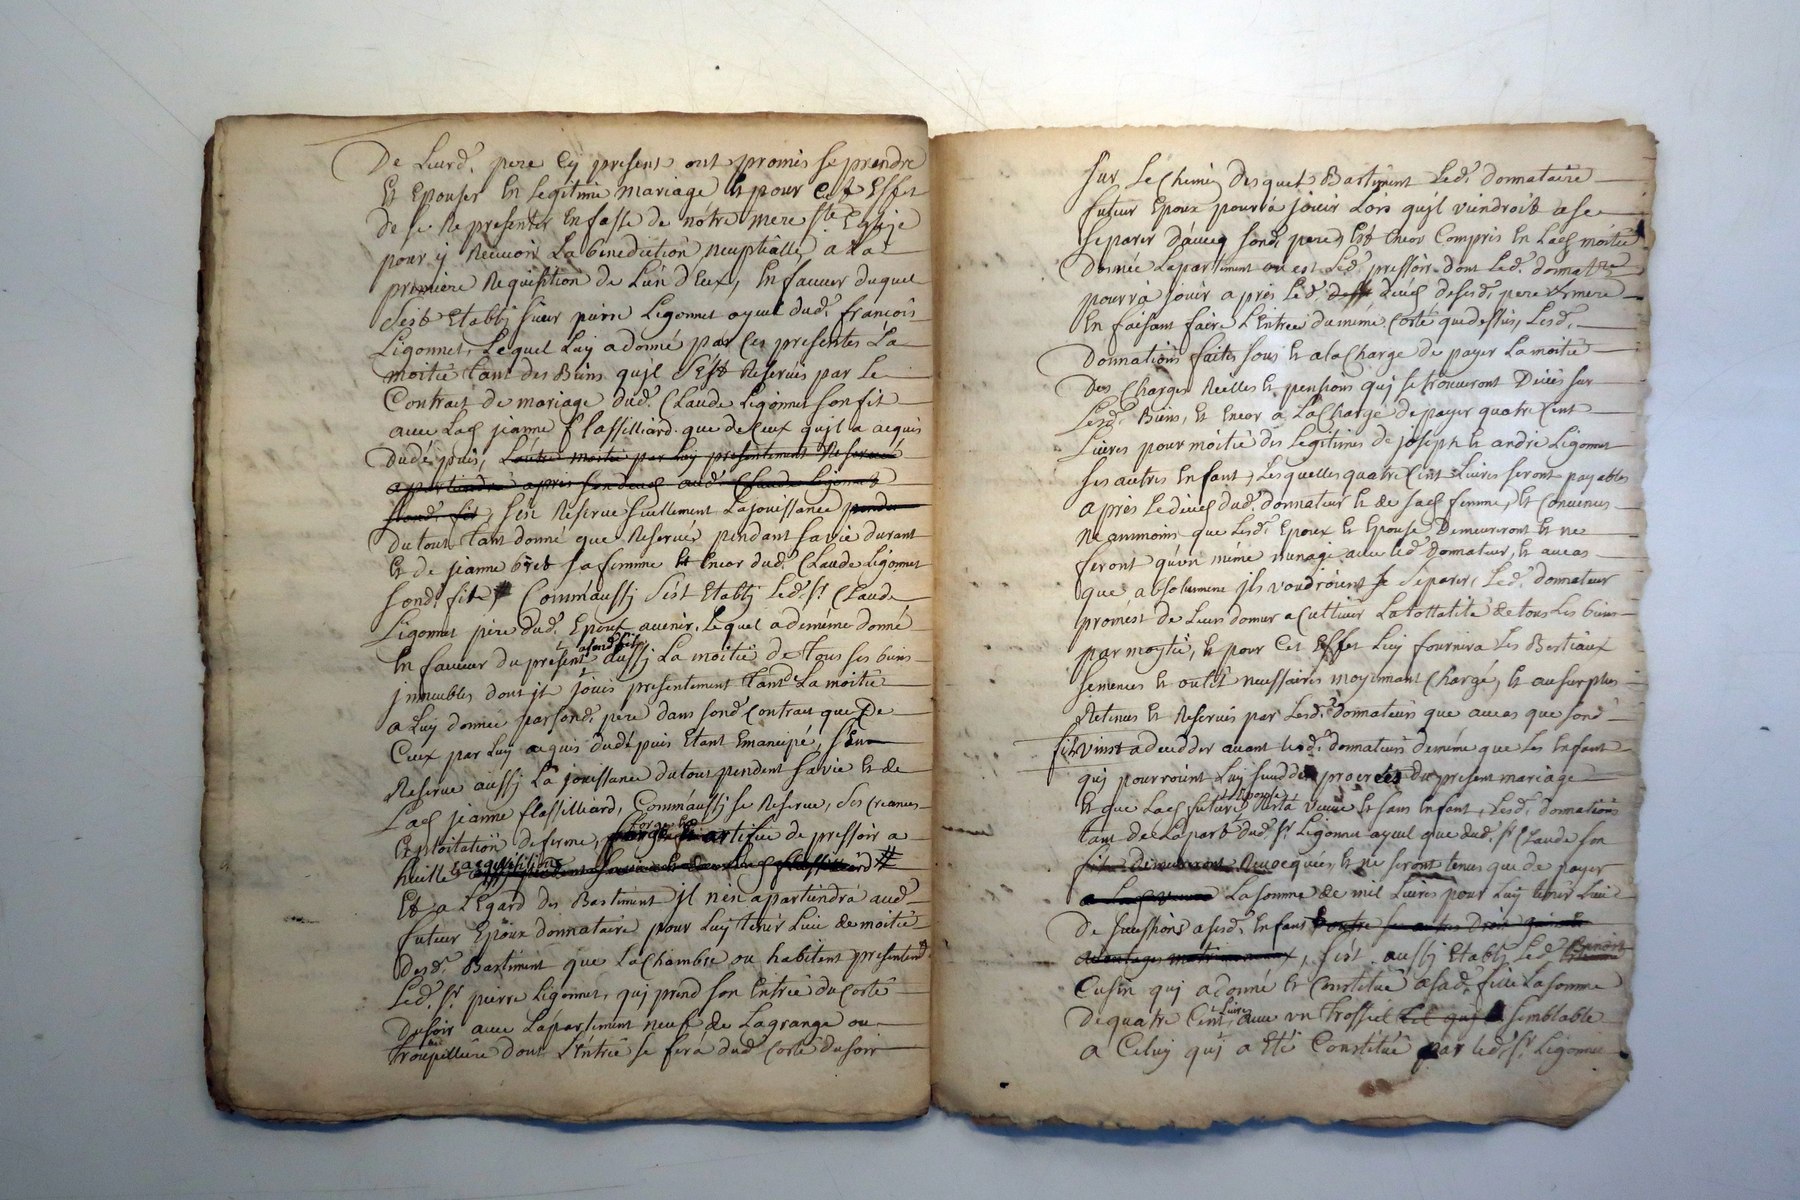 De Leurd. pere Cy present ont promis se prendre
Et Epouser En Legitime mariage Et pour Cet Effet
de se Representer En fasse de notre mere Ste Eglize
pour ÿ Recevoir La benediction neuptialle, a La
premiere Requisition de L'un d'Eux, En faveur duquel
s'est Etably sieur pierre Ligonnet ayeul dud. francois
Ligonnet, Lequel Luy a donné par Ces presentes La
moitié tant des Biens qu'jl s'Est Reservés par Le
Contract de mariage dud. Claude Ligonnet son fil
avec Lad. jeanne flassilliard que de Ceux qu'jl a acquis
dudépuis, L'autre moitié par Luy presentement Reservé
appartiendra apres son deces aud. Claude Ligonnet
sond. fil, s'en Reserve seullement La jouissance pendan
du tout tant donné que Reservé pendant sa vie durant
Et de jeanne sa femme Et Encor dud. Claude Ligonnet
sond. fils, Comm'aussy s'est Etably Led. sr. Claude
Ligonnet père dud. Epoux avenir, Lequel a de même donné
En faveur du present a sond. fils aussy La moitié de tous ses biens
jmmeubles dont jl jouis presentement tant La moitié
a Luy donnée par sond. pere dans sond Contract que De
Ceux par Luy acquis dudépuis Etant Emancipé, s'En
Reserve aussy La jouissance du tout pendent sa vie Et de
Lad. jeanne flassilliard, Comm'aussy se Reserve, ses creances
Exploitation de ferme, forge Et artifice de pressoir a
huille, acquisitions
Et a L'Egard des Bastiment jl n'en apartiendra aud.
futeur Epoux donnataire pour Luy tenir Lieu de moitié
desd. Bastiment que La Chambre ou habitent presentent
Led. sr. pierre Ligonnet, quj prend son Entrée du Corté
du soir avec L'apartiment neuf de La grange ou
troupilliere dont L'entrée se fera dud. Corté du soir
sur Le Chemin desquel Bastiment Led. donnataire
futeur Epoux pourra jouir Lors qu'jl viendroit a se
separer d'avec sond. pere, Et Encor Compris En Lad. moitié
donnée L'apartiment ou est Led. pressoir dont Led. donnatre
pourra jouir apres Led. deces desesd. pere & mere
En faisant faire L'Entrée du même Corté que dessus, Lesd.
donnations faites sous Et a La Charge de payer La moitié
des Charges Reelles Et pensions quj se trouveront Dües sur
Lesd. Biens, Et Encor a La Charge de payer quatre Cent
Livres pour moitié des Legitimes de joseph Et andré Ligonnet
ses autres Enfant, Lesquelles quatre Cent Livres seront payables
apres Le deces dud. donnateur Et de sad. femme, Et Convenus
neammoins que Lesd. Epoux Et Epouse Demeureront Et ne
feront qu'un même menage avec Led. Donnateur, Et au cas
que absolument jls voudroient se separer, Led. donnateur
promest de Leurs donner a Cultiver La tottalité de tous Les biens
par moytié, Et pour Cet Effet Luy fournira Les Bestiaux
semences Et outil necessaires moyennant Charge, Et au surplus
Retenus Et Reservés par Lesd. Donnateurs que au cas que sond
fils vinst a deceder avant Lesd. donnateurs de même que Les Enfant
quj pourroient Luy succeder procrées du present mariage
Et que Lad. future Epouse Resta veuve Et sans Enfant, Lesd. Donnations
tant de La part dud. sr. Ligonnet ayeul que dud. sr. Claude son
fils Demeureront Revocquées, Et ne seront tenus que de payer
a La veuve La somme de mil Livres pour Luy tenir Lieu
De successions a sesd. Enfans Et outre ses autres Droit
avantages matrimoniaux, s'est aussy Etably Led. Benoit
Cusin quj a donné Et Constitué a sad. fille La somme
de quatre Cent Livres avec un trossel semblable
a Celuy quj a Eté Constitué par Led. sr. Ligonnet